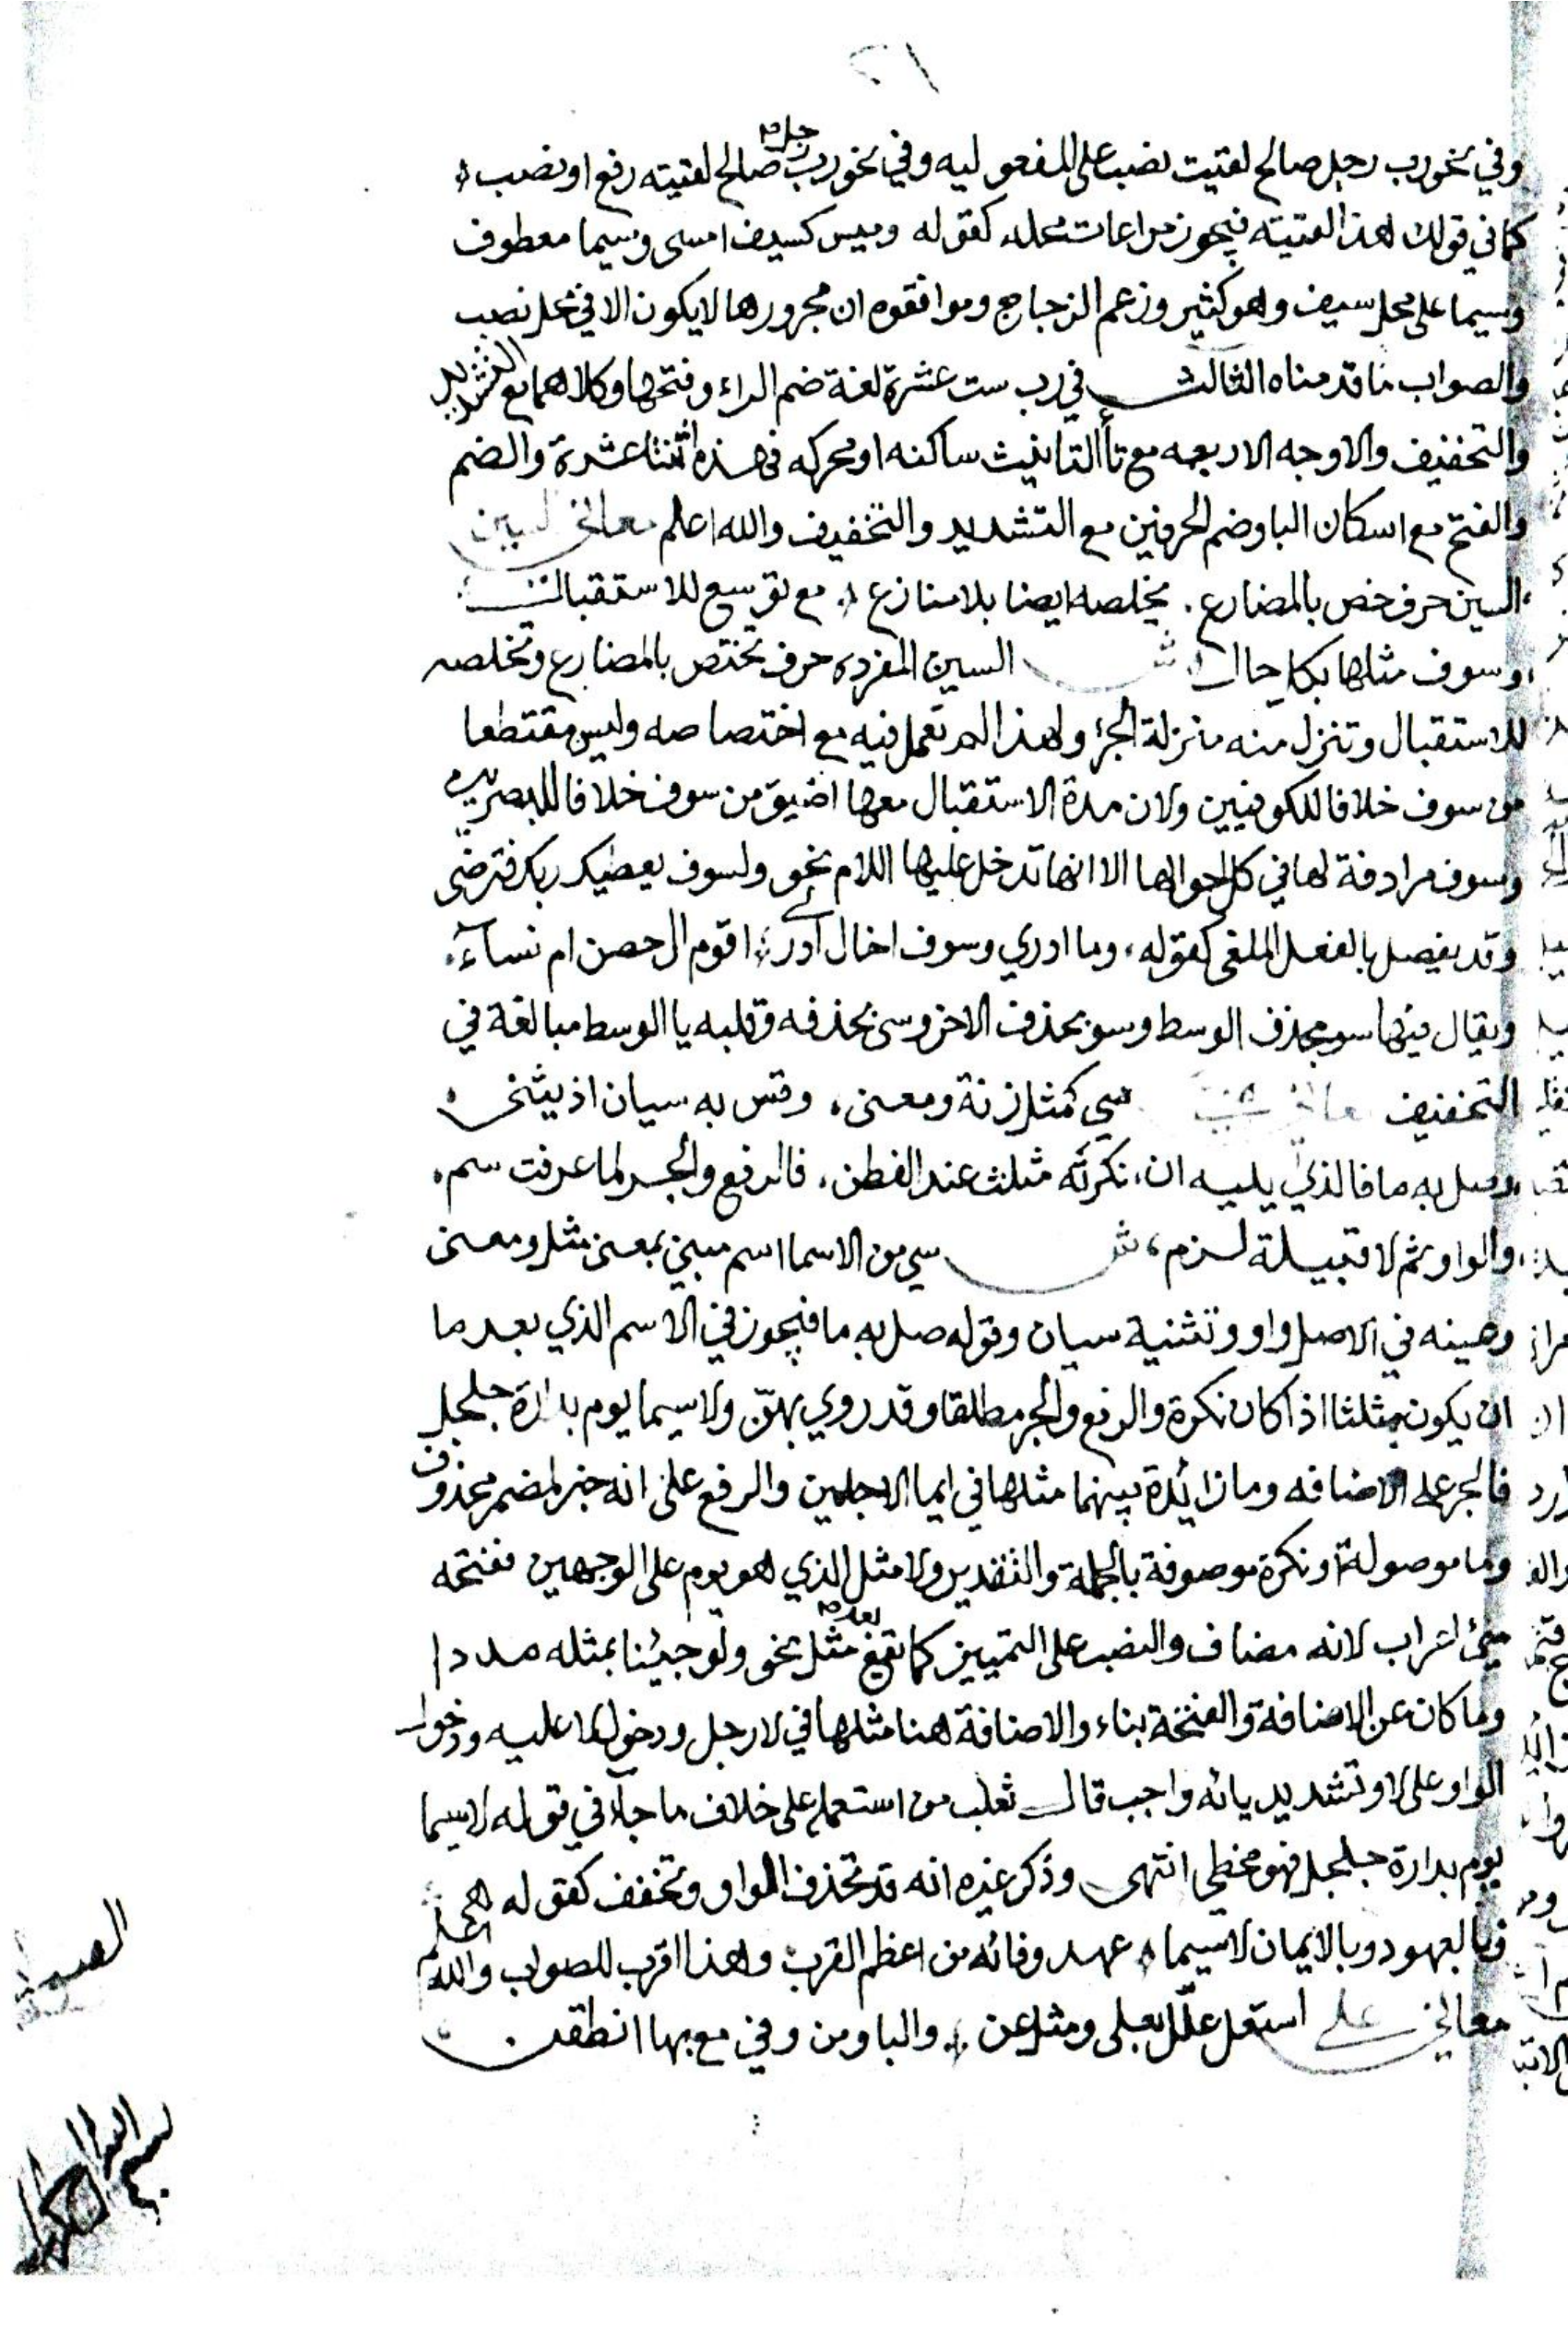 وفي نحو رب رجل صالح لقيت نصب على المفعوليه وفي نحو رب رجل صالح لقيته رفع او نصب
كما في قولك هذا لقيته فيجوز مراعات محله كقوله وسيما معطوف
وسيما على محل سيف وهو كثير وزعم الزجاج وموافقوه ان مجرورها لا يكون الا في محل نصب
والصواب ما قدمناه الثالث في رب ست عشرة لغة ضم الراء وفتحها وكلاهما مع التشديد
والتخفيف والاوجه الاربعه مع تأ التانيث ساكنه او محركه فهذه اثنتا عشرة والضم
والفتح مع اسكان البا وضم الحرفين مع التشديد والتخفيف والله اعلم معاني السين
السين حرف خص بالمضارع . يخلصه ايضا بلا منازع مع توسع للاستقبال
وسوف مثلها بكل حال ش السين المفرده حرف تختص بالمضارع وتخلصه
للاستقبال وتنزل منه منزلة الجزء ولهذا لم تعمل فيه مع اختصاصه وليس مقتطعا
من سوف خلافا للكوفيين ولان مدة الاستقبال معها اضيق من سوف خلافا للبصريين
وسوف مرادفة لها في كل احوالها الا انها تدخل عليها اللام نحو ولسوف يعطيك ربك فترضى
وقد يفصل بالفعل الملغى كقوله وما ادري وسوف اخال ادري اقوم ال حصن ام نساء
ويقال فيها سف بحذف الوسط وسو بحذف الاخر وسي بحذفه وقلبه يا الوسط مبالغة في
التخفيف معاني سي كمثل زنة ومعنى وقس به سيان اذ يثنى
وصل به ما فالذي يليه ان نكرته مثلث عند الفطن فالرفع والجر لما عرفت سم
والواو ثم لا قبيلة لزم ش سي من الاسما اسم مبني بمعنى مثل ومعنى
وعينه في الاصل واو وتثنية سيان وقوله صل به ما فيجوز في الاسم الذي بعد ما
ان يكون مثلثا اذا كان نكرة والرفع والجر مطلقا وقد روي بهن ولا سيما يوم بدارة جلجل
فالجر على الاضافه وما زائدة بينهما مثلها في ايما الاجلين والرفع على انه خبر لمضمر محذوف
وما موصولة او نكرة موصوفة بالجملة والتقدير ولا مثل الذي هو يوم على الوجهين ففتحه
سي اعراب لانه مضاف والنصب على التمييز كما تقع بعد مثل نحو ولو جئنا بمثله مددا
وما كان عن الاضافة والفتحة بناء والاضافة هنا مثلها في لا رجل ودخول لا عليه ودخول
الواو على لا وتشديد يائه واجب قال ثعلب من استعمله على خلاف ما جاء في قوله لا سيما
يوم بدارة جلجل فهو مخطي انتهى وذكر غيره انه قد تحذف الواو وتخفف كقوله
فبالعهود وبالايمان لا سيما عهد وفائه من اعظم القرب وهذا اقرب للصواب والله اعلم
معاني على استعل علل بعلى ومثل عن والبا ومن وفي مع بها انطقن